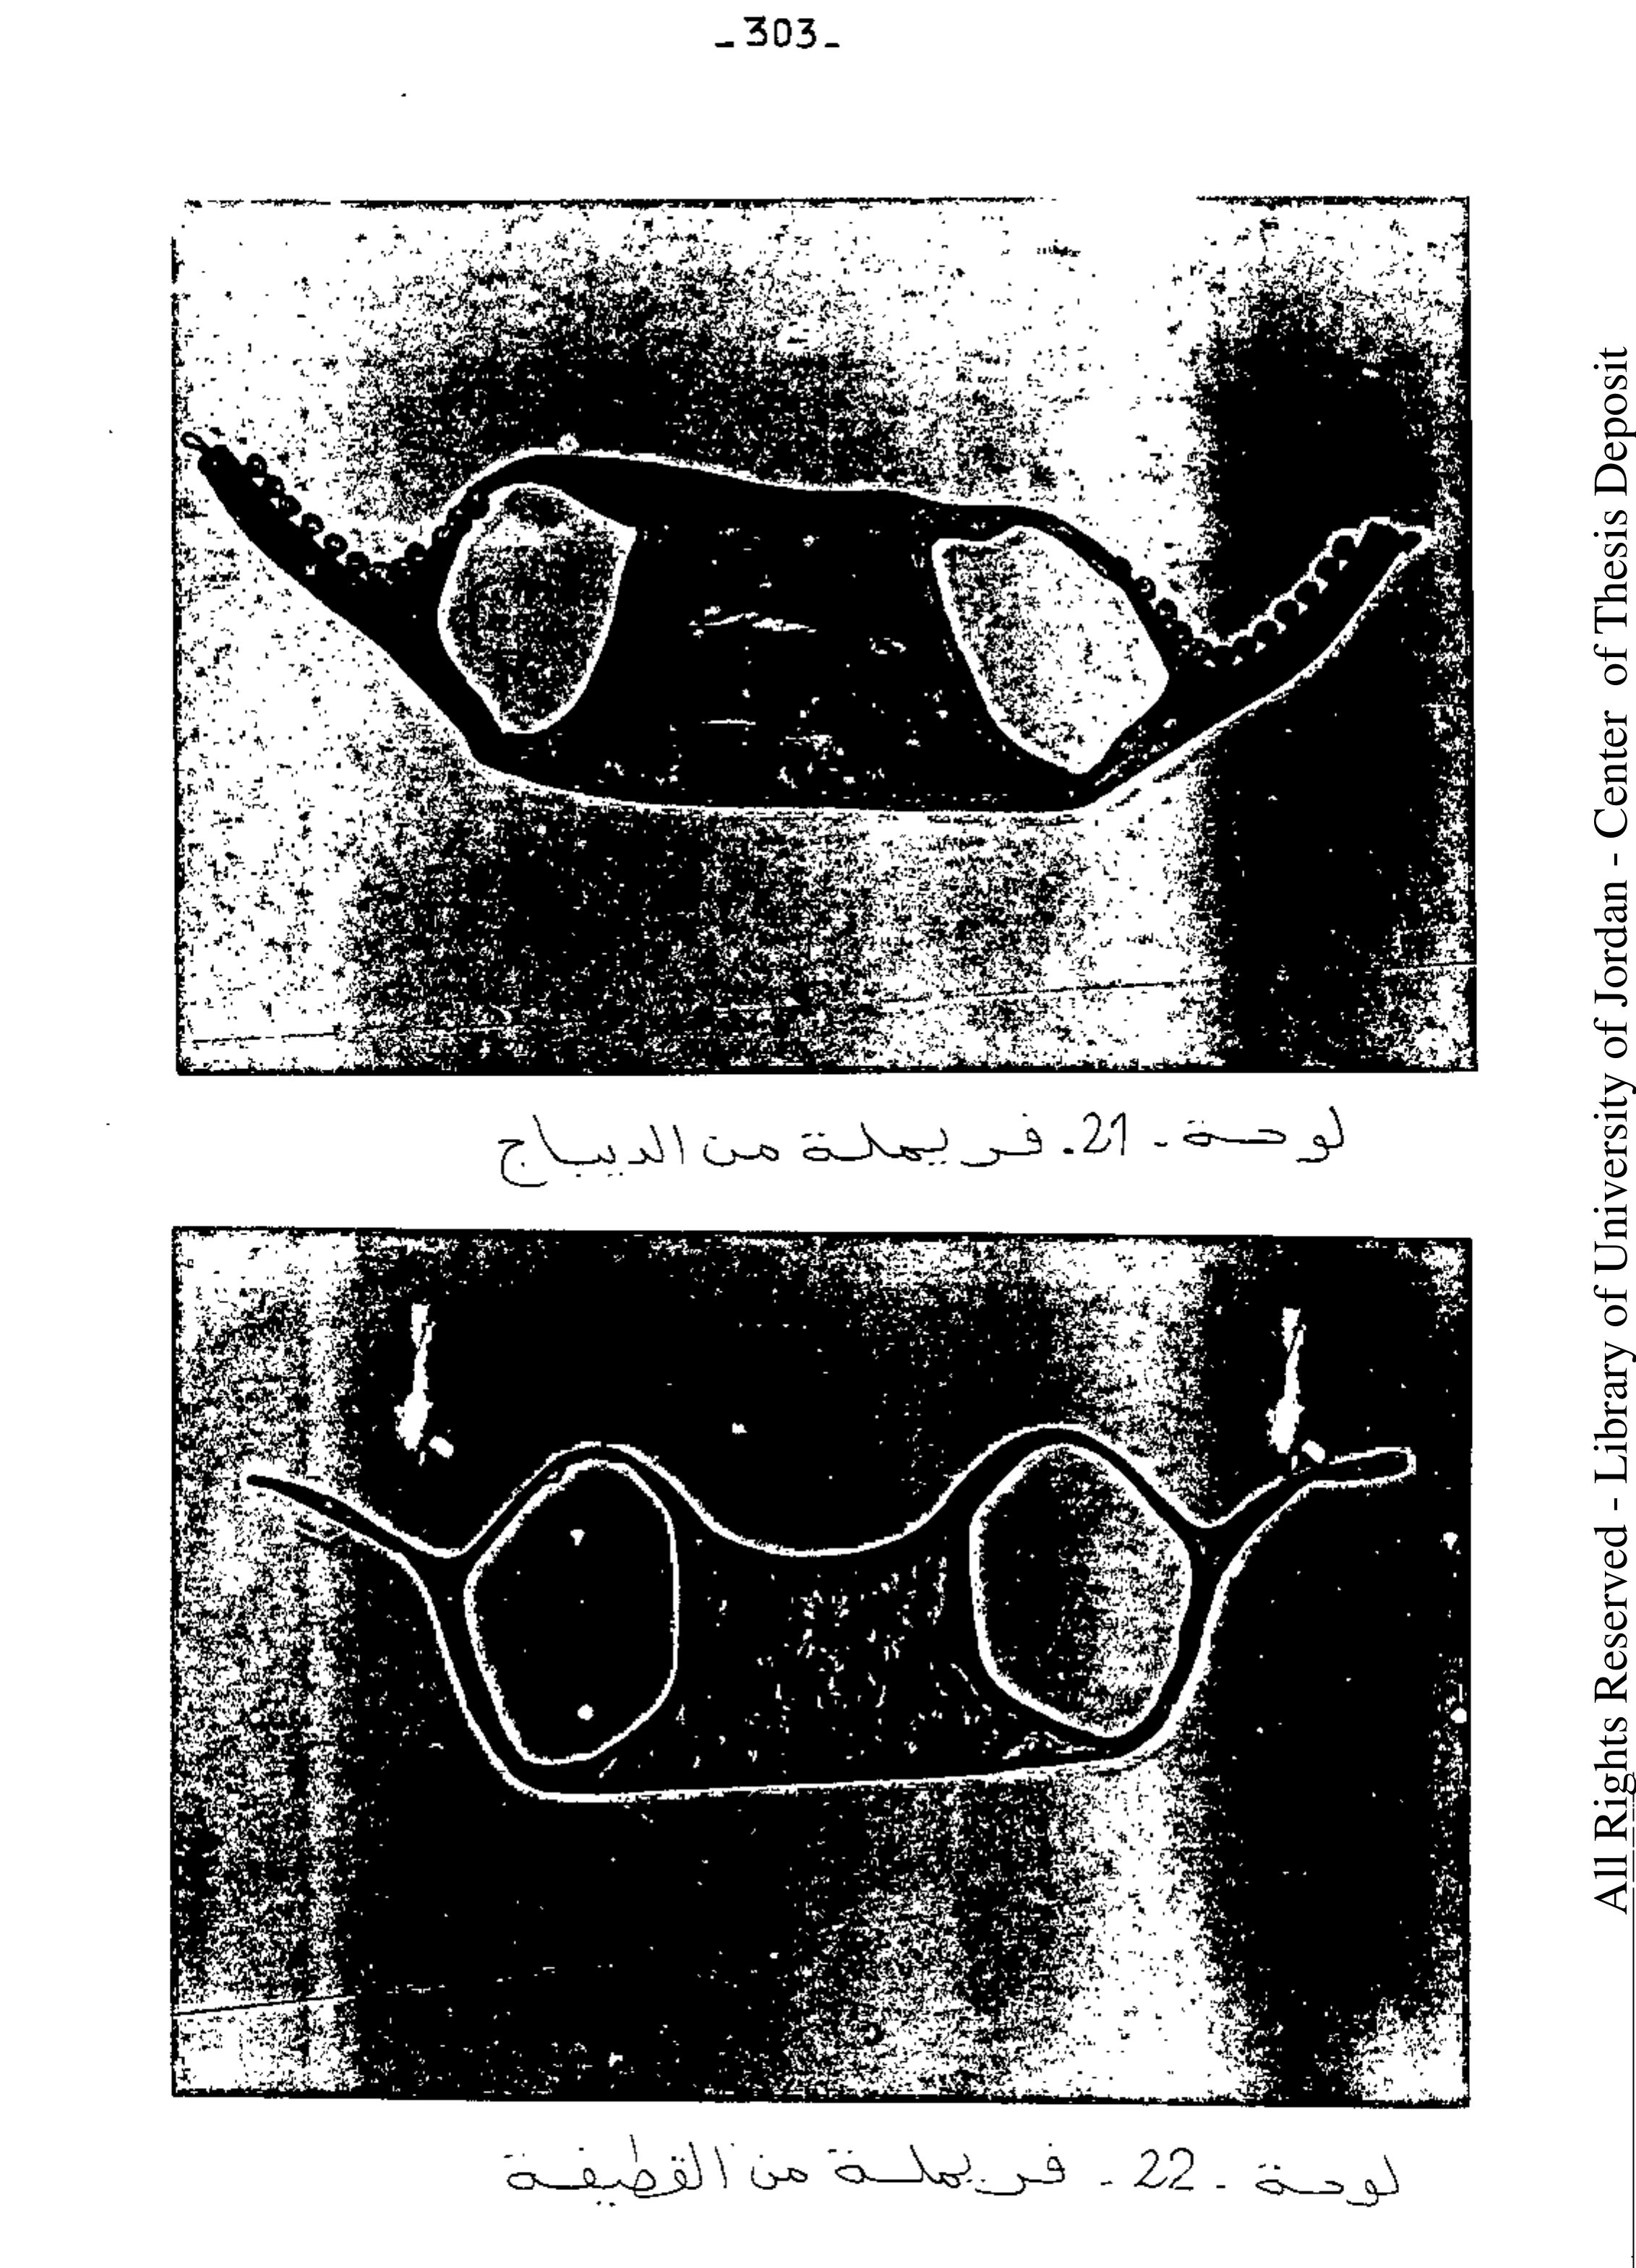 -303-
لوحة - 21. فريملة من الديباج
لوحة - 22 - فريملة من القطيفة
All Rights Reserved - Library of University of Jordan - Center of Thesis Deposit